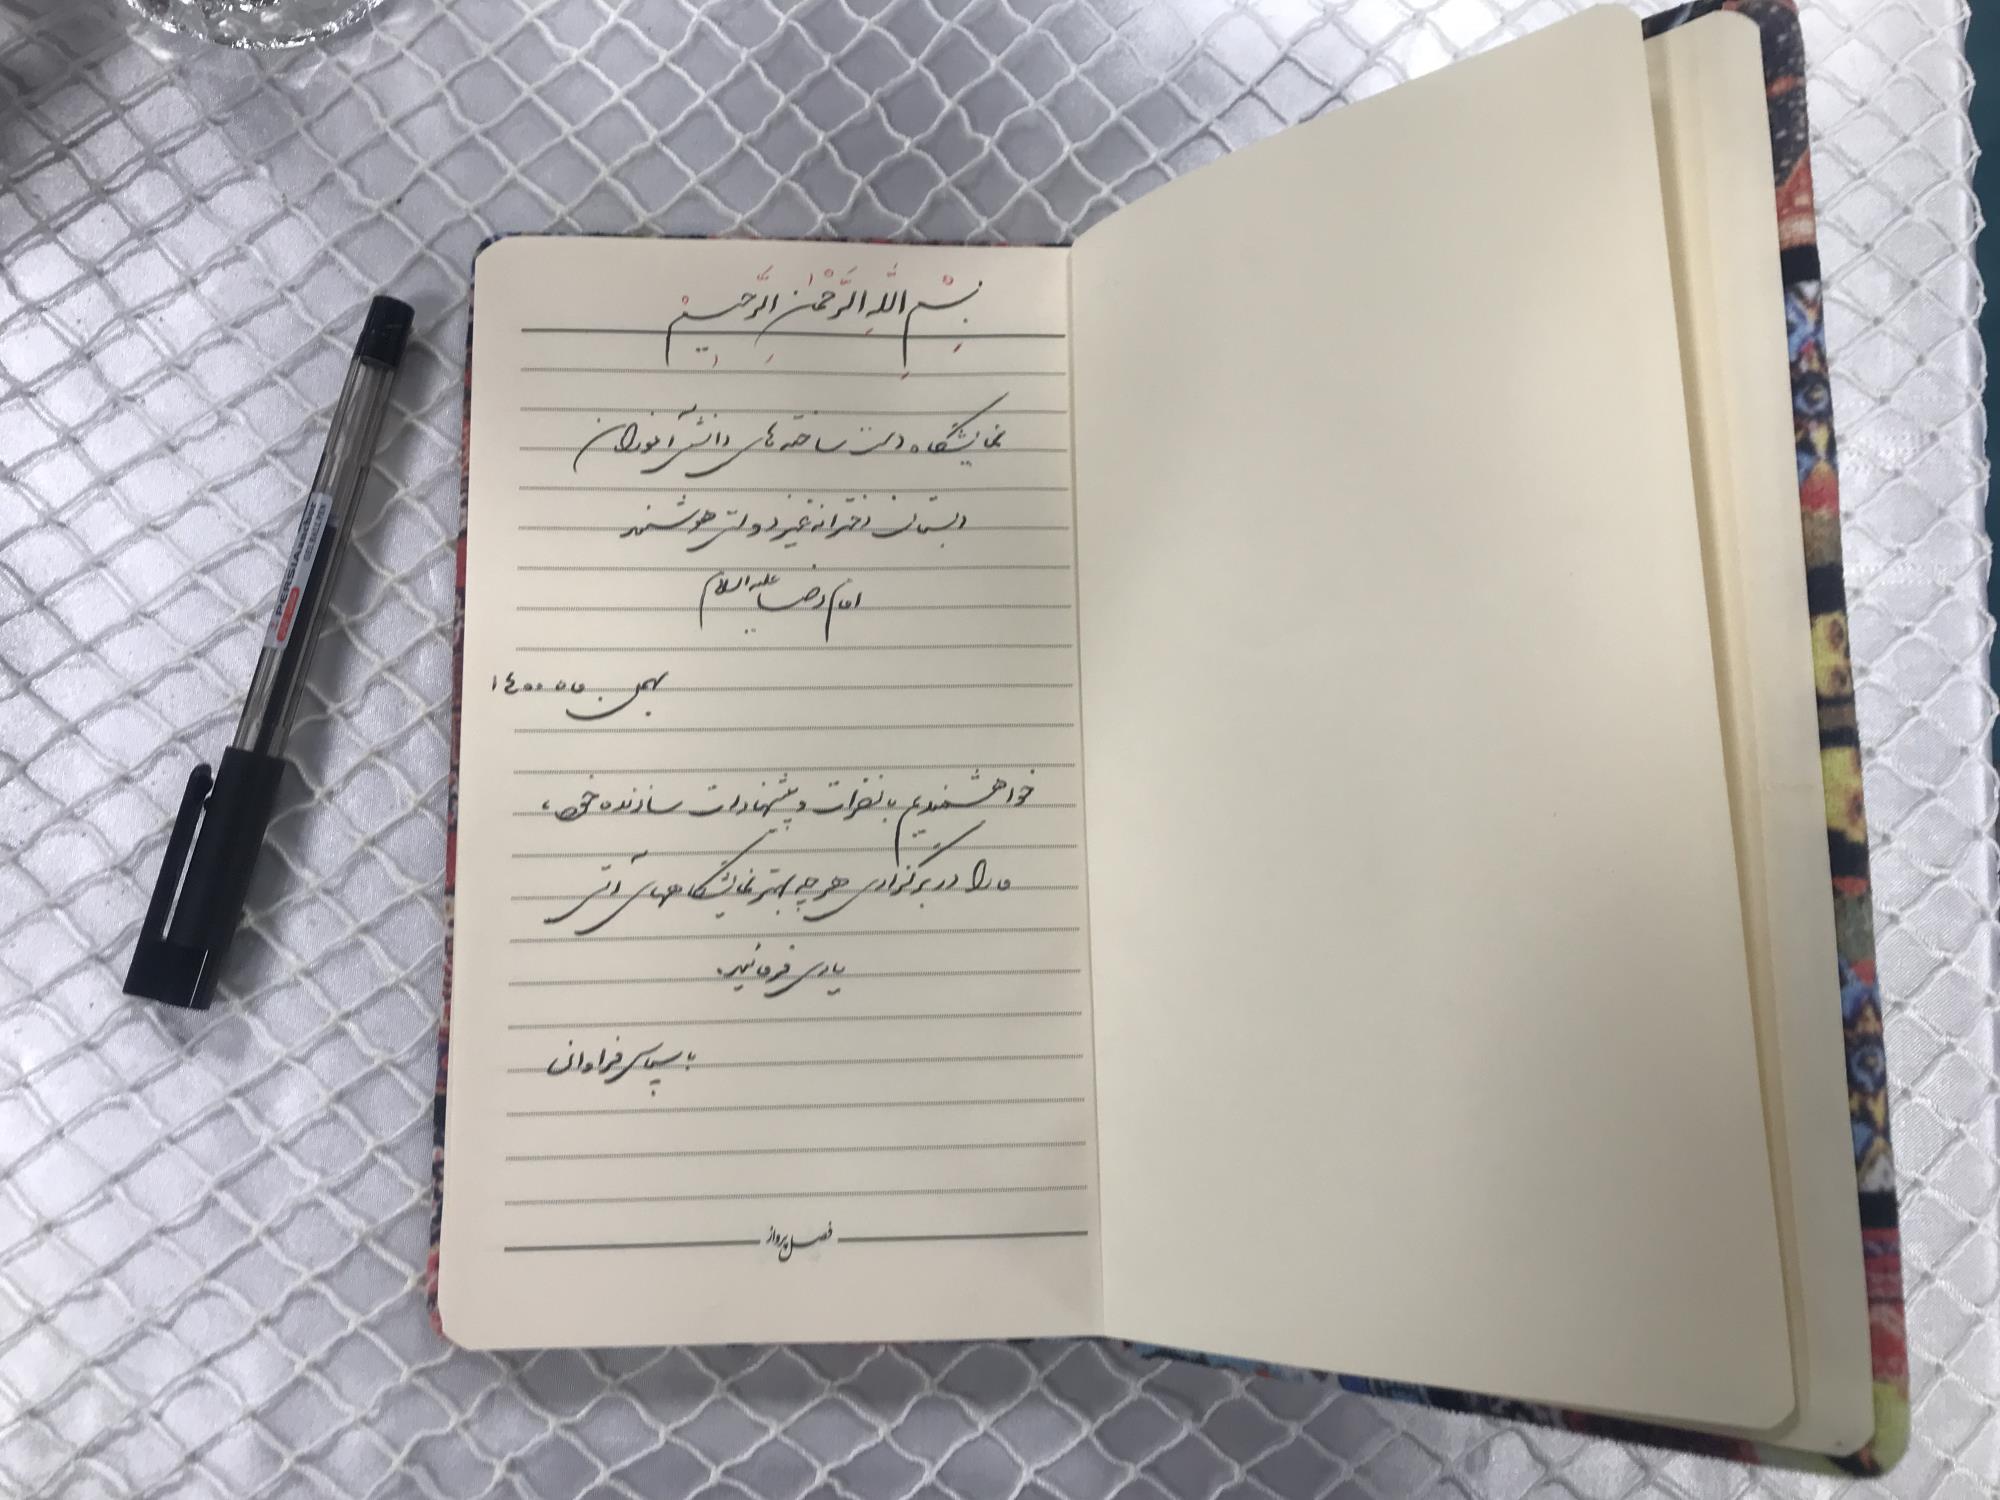 بِسْمِ اللَّهِ الرَّحْمٰنِ الرَّحِيمْ
نمایشگاه دست ساخته های دانش آموزان
دبستان دخترانه غیر دولتی هوشمند
امام رضا علیه السلام
بهمن ماه ۱۴۰۰
خواهشمندیم با نظرات و پیشنهادات سازنده خود،
ما را در برگزاری هر چه بهتر نمایشگاههای آتی
یاری فرمائید.
با سپاس فراوان
فصل پرواز
PERSIA